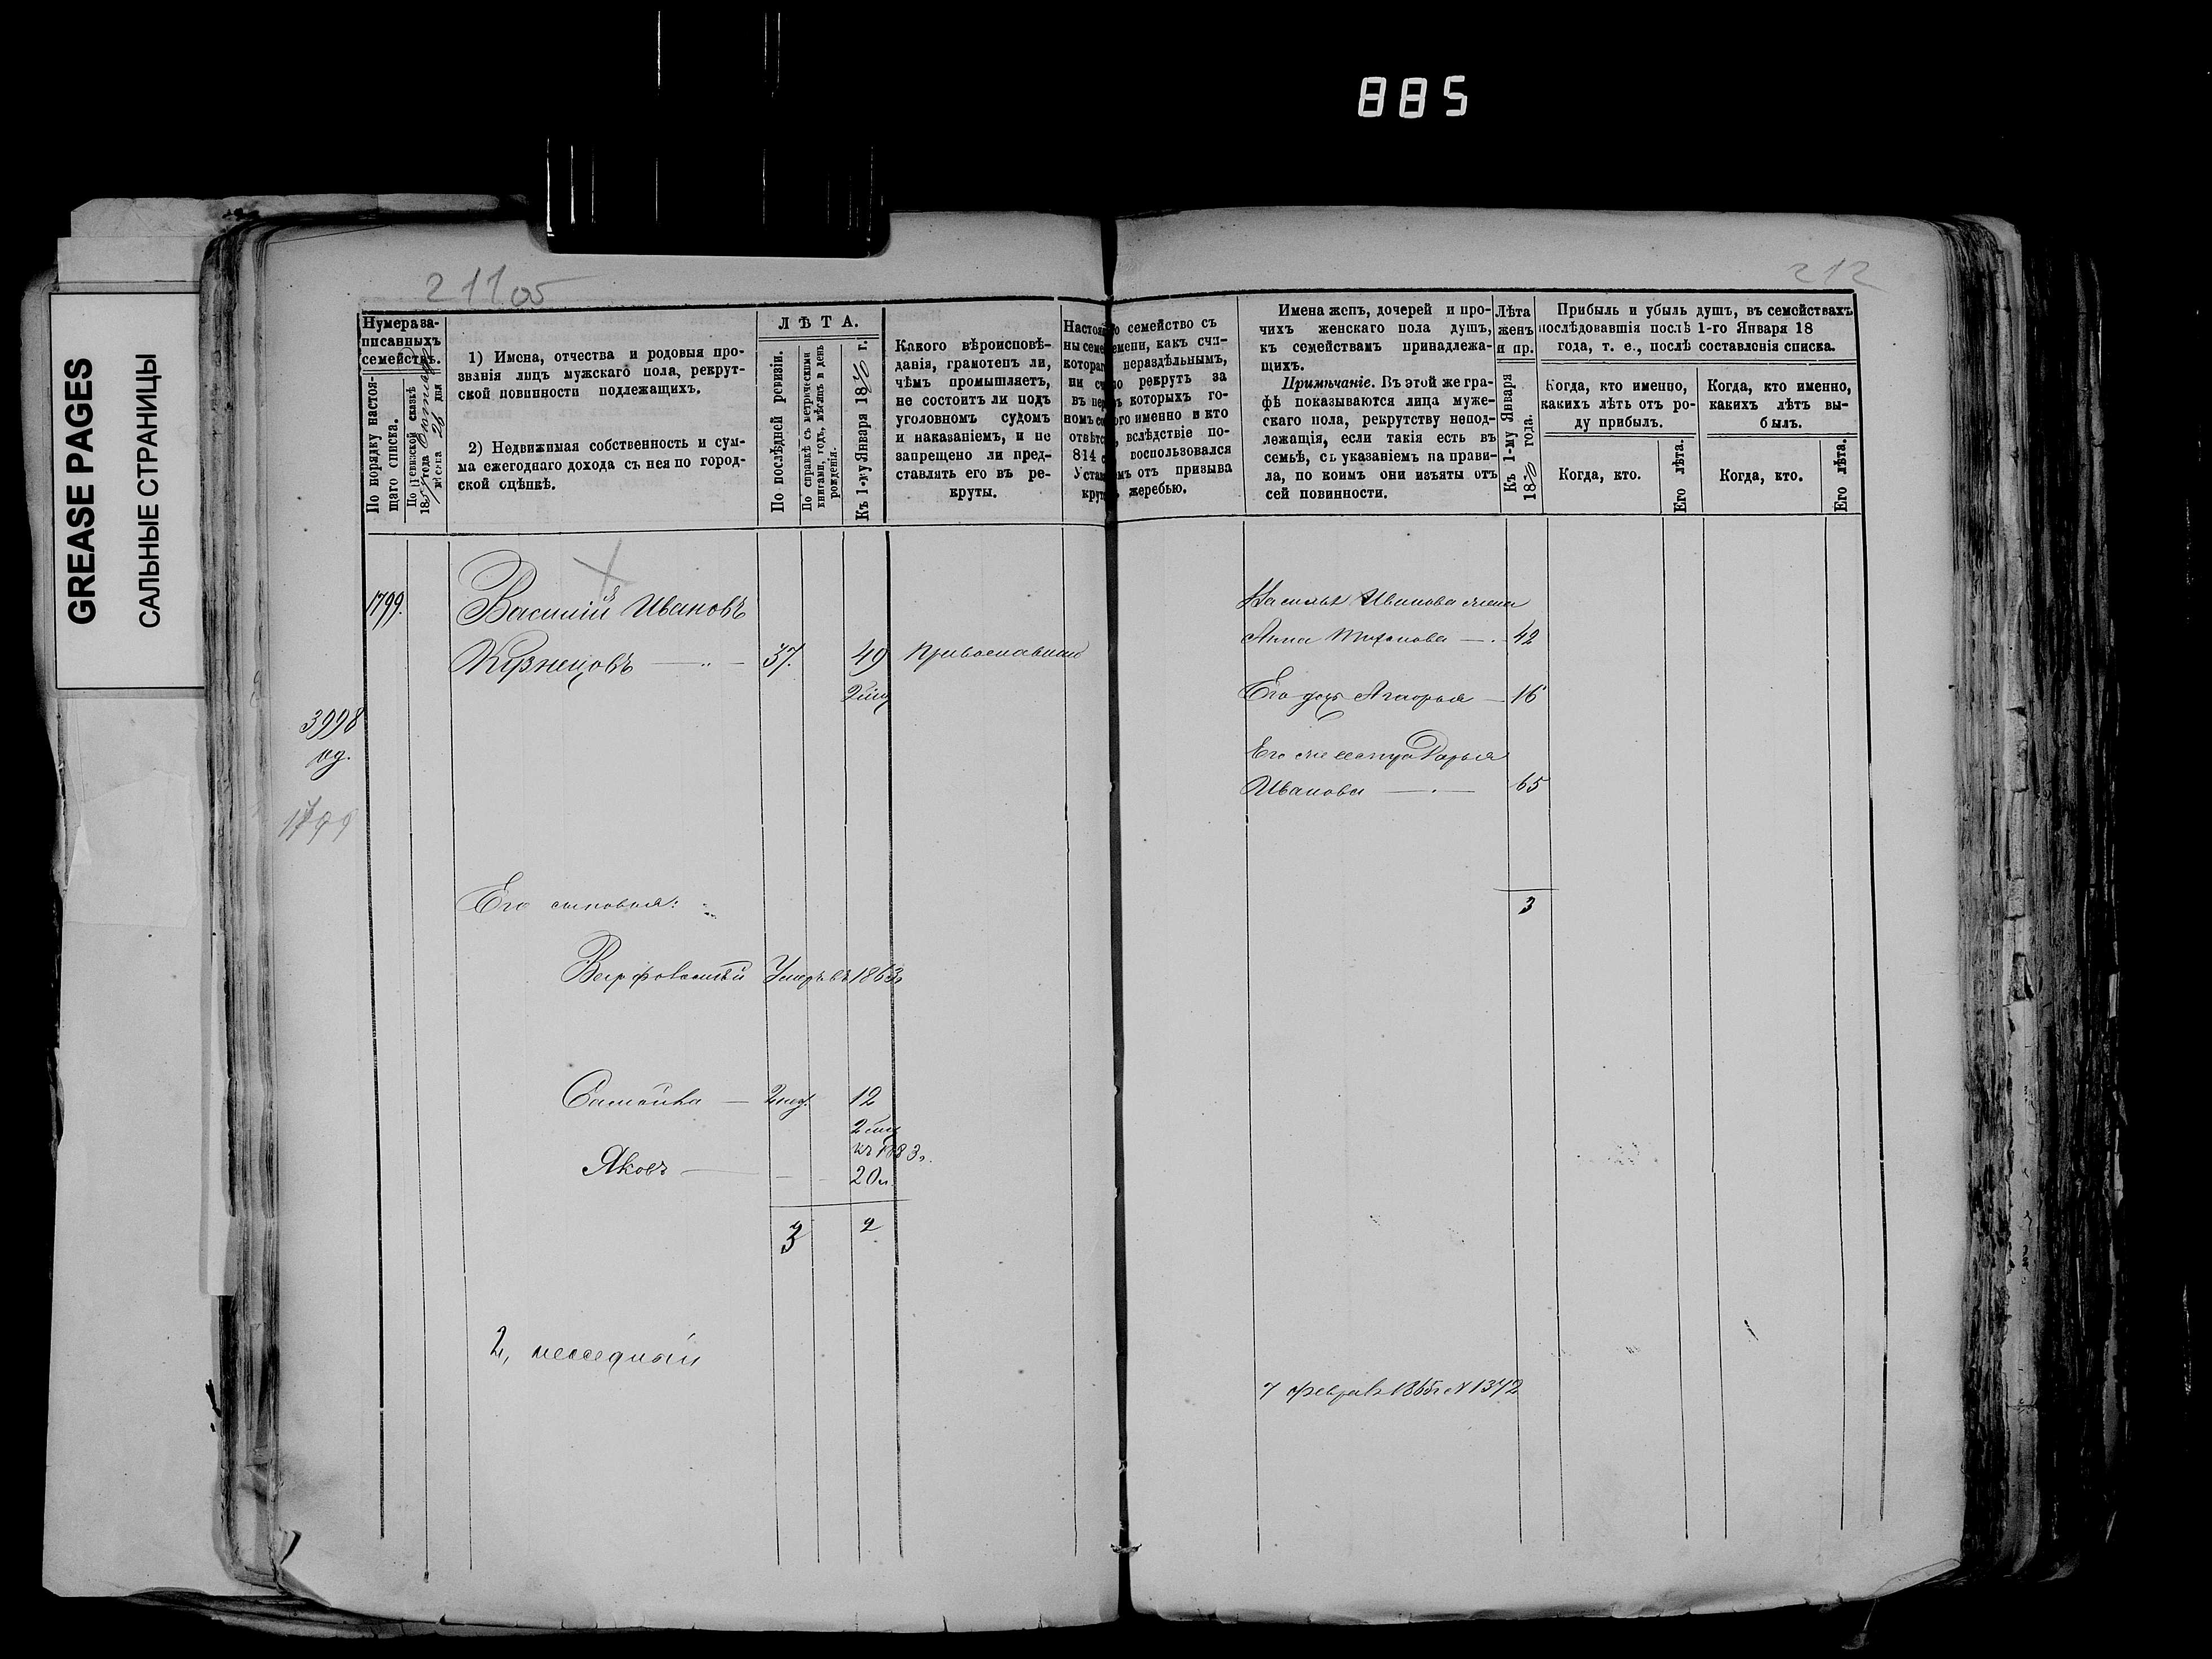 885
GREASE PAGES
САЛЬНЫЕ СТРАНИЦЫ
211 об
212
Нумера за-
писанныхъ
семействъ.
По порядку настоя-
щаго списка.
По ревизской сказкѣ
18 года
мѣсяца 26 дня
1) Имена, отчества и родовыя про-
званія лицъ мужскаго пола, рекрут-
ской повинности подлежащихъ.
2) Недвижимая собственность и сум-
ма ежегоднаго дохода съ нея по город-
ской оцѣнкѣ.
ЛѢТА.
По послѣдней ревизіи.
По справкѣ съ метрическими
книгами, годъ, мѣсяцъ и день
рожденія.
Къ 1-му Января 1870 г.
Какого вѣроисповѣ-
данія, грамотенъ ли,
чѣмъ промышляетъ,
не состоитъ ли подъ
уголовномъ судомъ
и наказаніемъ, и не
запрещено ли пред-
ставлять его въ ре-
круты.
семейство съ
какъ счи-
нераздѣльнымъ,
рекрутъ за
которыхъ го-
именно и кто
вслѣдствіе по-
воспользовался
отъ призыва
жеребью.
Имена женъ, дочерей и про-
чихъ женскаго пола душъ,
къ семействамъ принадлежа-
щихъ.
Примѣчаніе. Въ этой же гра-
фѣ показываются лица муже-
скаго пола, рекрутству непод-
лежащія, если такія есть въ
семьѣ, съ указаніемъ на прави-
ла, по коимъ они изъяты отъ
сей повинности.
Лѣта
женъ
и пр.
Къ 1-му Января
1870 года.
Прибыль и убыль душъ, въ семействахъ
послѣдовавшія послѣ 1-го Января 18
года, т. е., послѣ составленія списка.
Когда, кто именно,
какихъ лѣтъ отъ ро-
ду прибылъ.
Когда, кто именно,
какихъ лѣтъ вы-
былъ.
Когда, кто.
Его лѣта.
Когда, кто.
Его лѣта.
1799.
Василій Ивановъ
Кузнецовъ 37. 49 Православнаго
3998
1799
Василья Иванова жена
Анна Тихонова 42
Его дочь 16
Его Дарья
Иванова 65
3
Его сыновья:
Умеръ въ 1863г
Самойла 2 нед. 12
къ 1883г.
Яковъ 20 л.
3 2
2,
7 Февраля 1865г № 1372